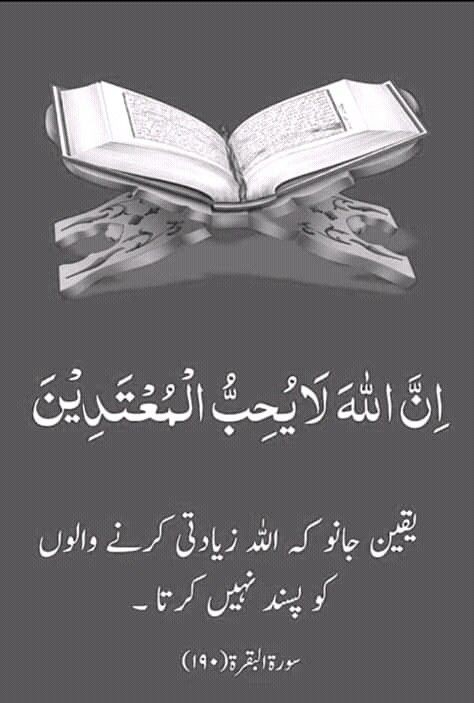 اِنَّ اللّٰهَ لَا يُحِبُّ الْمُعْتَدِيْنَ
یقین جانو کہ اللہ زیادتی کرنے والوں
کو پسند نہیں کرتا۔
سورۃ البقرۃ(۱۹۰)